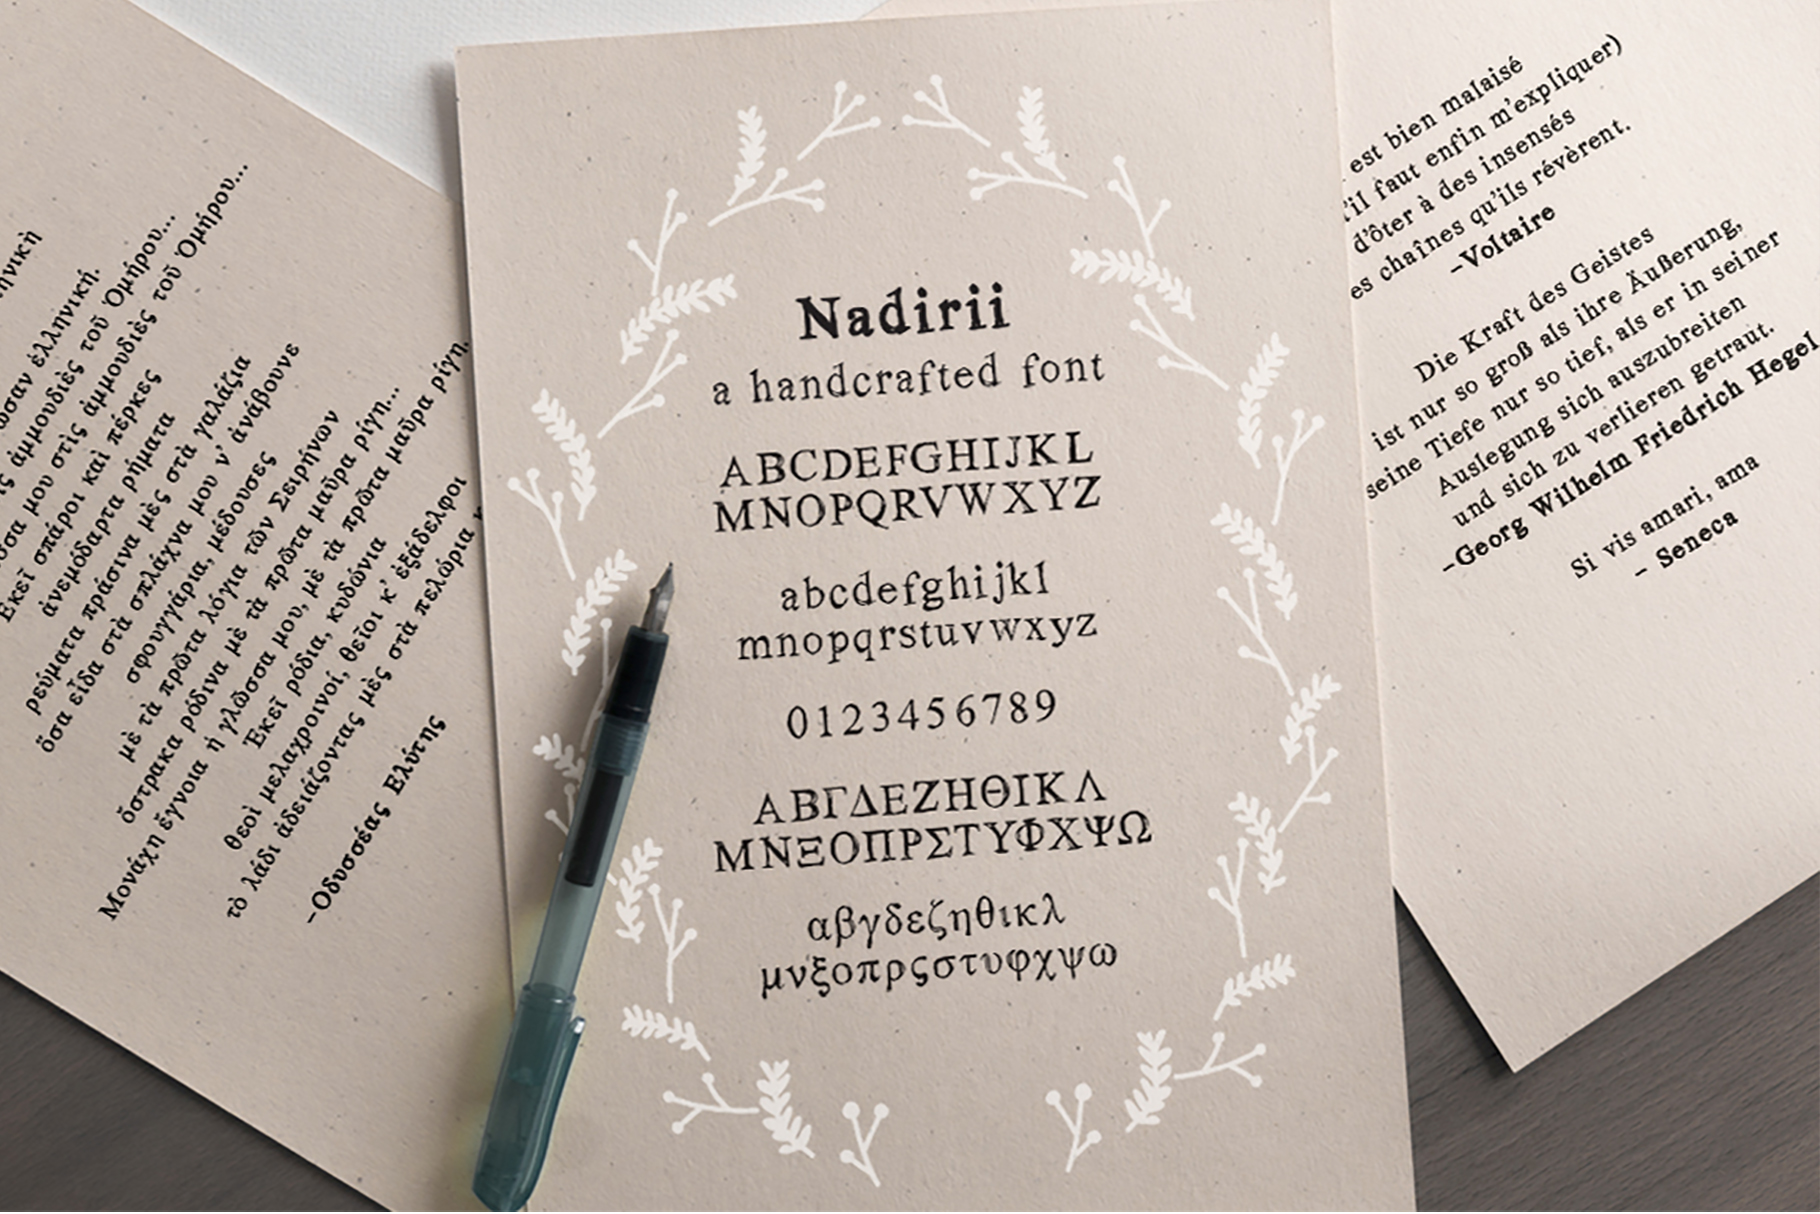 ἑλληνική.
ἀμμουδιὲς τοῦ Ὁμήρου...
μου στὶς ἀμμουδιὲς τοῦ Ὁμήρου...
Ἐκεῖ σπάροι καὶ πέρκες
ἀνεμόδαρτα ρήματα
ρεύματα πράσινα μὲς στὰ γαλάζια
ὅσα εἶδα στὰ σπλάχνα μου ν' ἀνάβουνε
σφουγγάρια, μέδουσες
μὲ τὰ πρῶτα λόγια τῶν Σειρήνων
ὄστρακα ρόδινα μὲ τὰ πρῶτα μαῦρα ρίγη...
Μονάχη ἔγνοια ἡ γλῶσσα μου, μὲ τὰ πρῶτα μαῦρα ρίγη.
Ἐκεῖ ρόδια, κυδώνια
θεοὶ μελαχροινοί, θεῖοι κ' ἐξάδελφοι
τὸ λάδι ἀδειάζοντας μὲς στὰ πελώρια
–Οδυσσέας Ελύτης
Nadirii
a handcrafted font
ABCDEFGHIJKL
MNOPQRVWXYZ
abcdefghijkl
mnopqrstuvwxyz
0123456789
ΑΒΓΔΕΖΗΘΙΚΛ
ΜΝΞΟΠΡΣΤΥΦΧΨΩ
αβγδεζηθικλ
μνξοπρςστυφχψω
est bien malaisé
'il faut enfin m'expliquer)
d'ôter à des insensés
es chaînes qu'ils révèrent.
–Voltaire
Die Kraft des Geistes
ist nur so groß als ihre Äußerung,
seine Tiefe nur so tief, als er in seiner
Auslegung sich auszubreiten
und sich zu verlieren getraut.
–Georg Wilhelm Friedrich Hegel
Si vis amari, ama
– Seneca